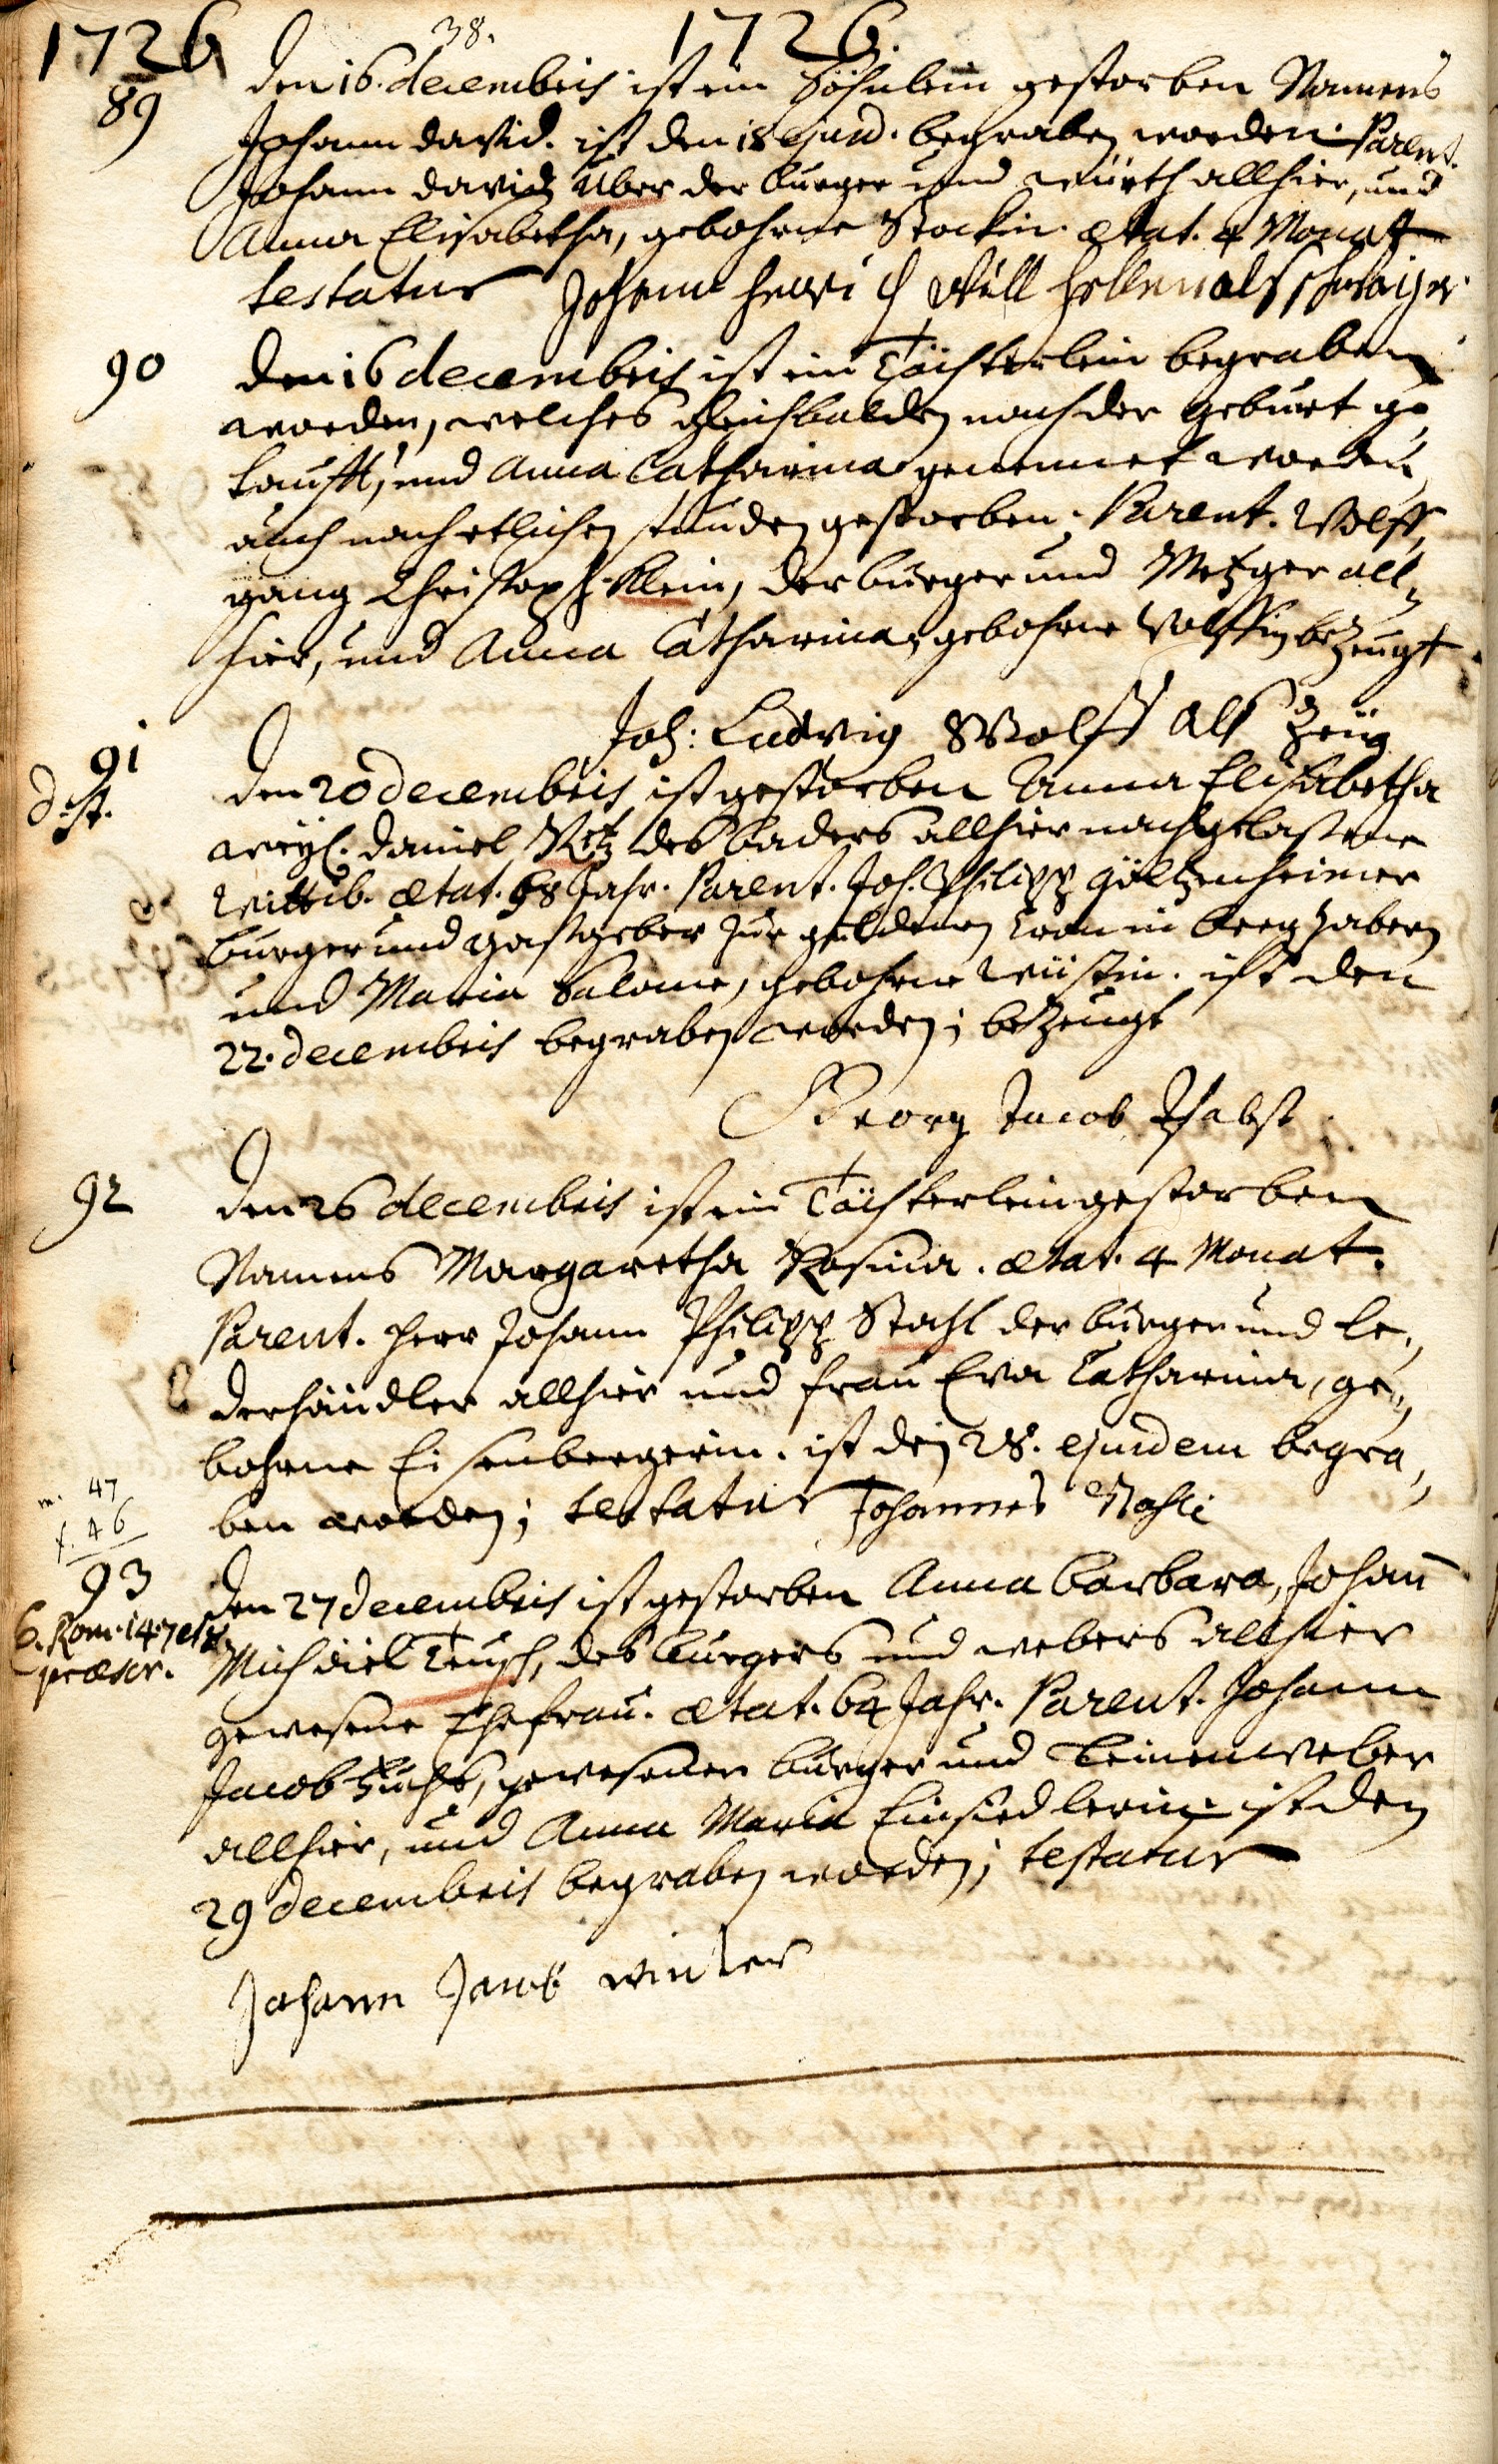 1726 38. 1726.
89 Den 16. decembris ist ein Söhnlein gestorben Namens
Johann David. ist den 18 ejusd. begraben worden. Parent.
Johann David Uber der burger und würth allhier, und
Anna Elisabetha, gebohrne Stockin. ætat. 4 Monat
testatur Johann Henrich Will
90 Den 16 decembris ist ein Töchterlein begraben
worden, welches gleichbalden nach der geburt ge-
taufft, und Anna Catharina genennet worden
auch nach etlichen stunden gestorben. Parent. Wolff-
gang Christoph Klein, der burger und Metzger all-
hier, und Anna Catharina, gebohrne Wolffin bezeugt
Joh: Ludwig Wolff als Zeüg
91 Den 20 decembris ist gestorben Anna Elisabetha
dist. weyl. Daniel des baders allhier nachgelaßene
Wittib. ætat. 58 Jahr. Parent. Joh. Philipp Göltzenheimer
burger und gastgeber zur guldenen in bergzabern
und Maria Salome, gebohrne Wüstin. ist den
22. decembris begraben worden; bezeugt
Georg Jacob Pabst
92 Den 26 decembris ist ein Töchterlein gestorben
Namens Margaretha Rosina. ætat. 4 Monat.
Parent. Herr Johann Philipp Stahl der burger und le-
derhändler allhier und frau Eva Catharina, ge-
bohrne Eisenbergerin. ist den 28. ejusdem begra-
ben worden; testatur Johannes Stahl
m. 47
f. 46
93 Den 27 decembris ist gestorben Anna Barbara, Johann
C. Rom. 14. 7 et 8 Michael Teusch, des burgers und webers allhier
præscr. gewesene Ehefrau. ætat. 64 Jahr. Parent. Johann
Jacob Fuchs, gewesener burger und leinenweber
allhier, und Anna Maria Einsiedlerin. ist den
29 decembris begraben worden; testatur
Johann Jacob Winter